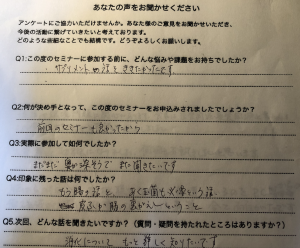 あなたの声をお聞かせください
アンケートにご協力いただけませんか。あなた様のご意見をお聞かせいただき、
今後の活動に繋げていきたいと考えております。
どのような些細なことでも結構です。どうぞよろしくお願いします。
Q1:この度のセミナーに参加する前に、どんな悩みや課題をお持ちでしたか?
サプリメントの話をききたかったです
Q2:何が決め手となって、この度のセミナーをお申込みされましたでしょうか?
前回のセミナーも良かったから
Q3:実際に参加して如何でしたか?
まだまだ奥が深そうで また聞きたいです
Q4:印象に残った話は何でしたか?
カゼ
Q5.次回、どんな話を聞きたいですか?(質問・疑問を持たれたところはありますか?)
消化について もっと詳しく知りたいです